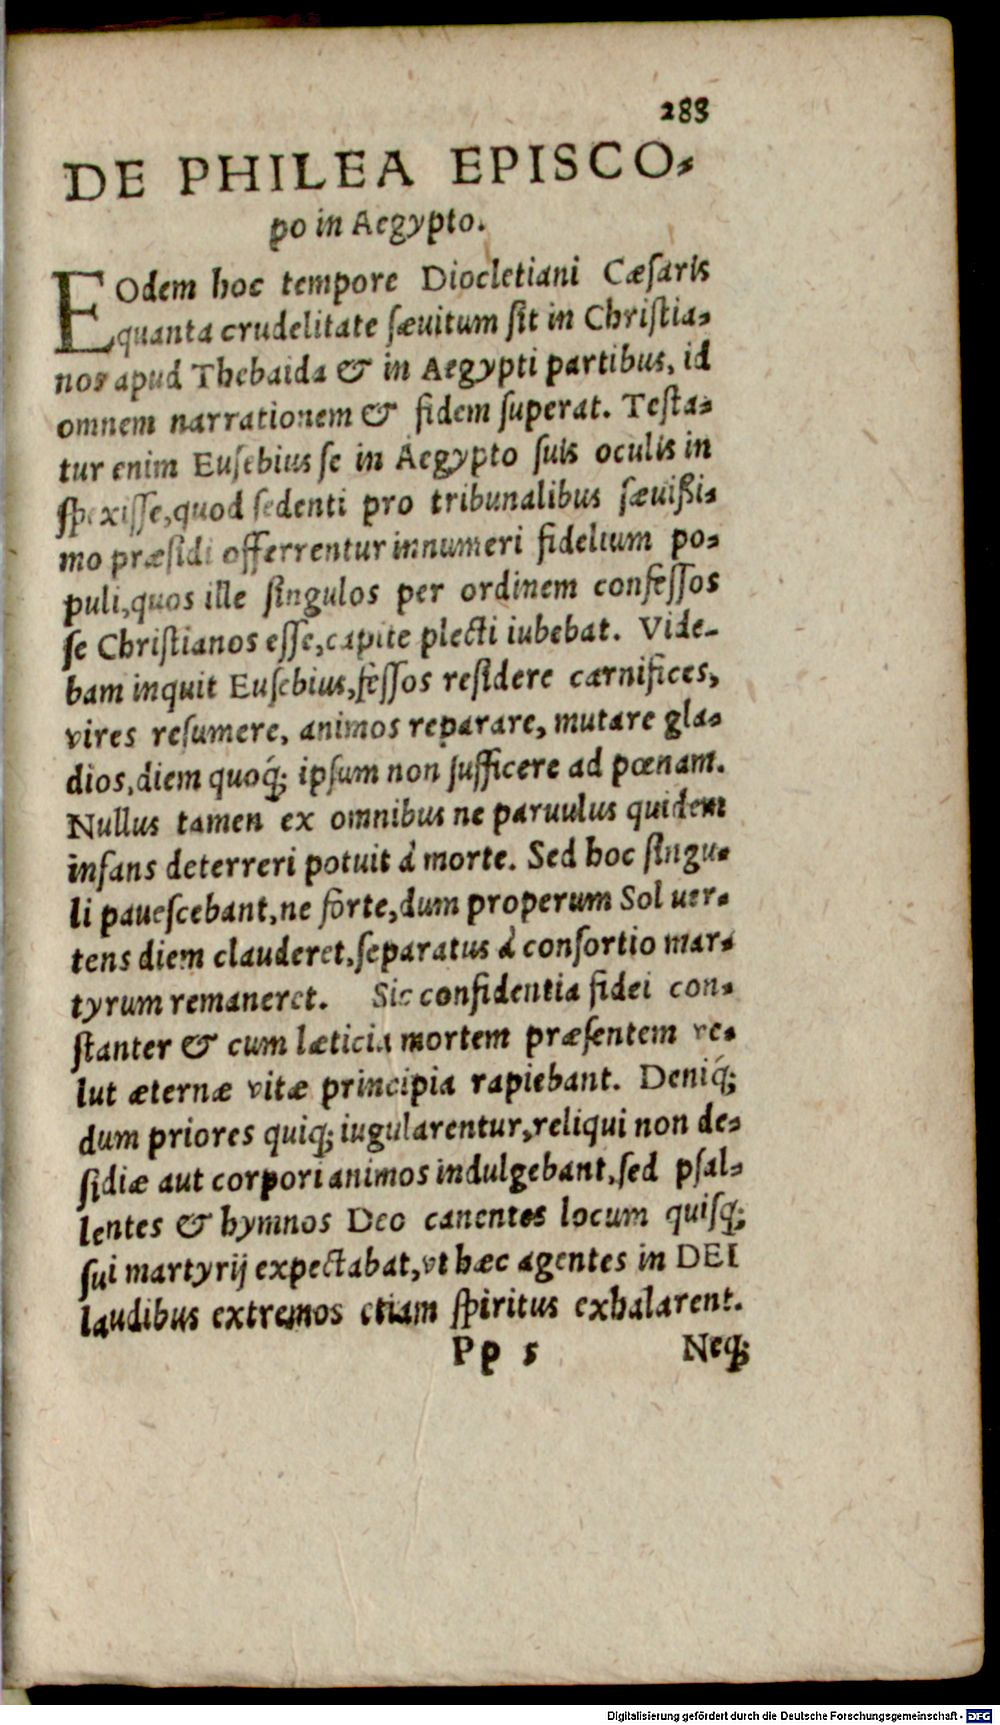 283
DE PHILEA EPISCO-
po in Aegypto.
EOdem hoc tempore Diocletiani Cæſaris
quanta crudelitate ſæuitum ſit in Chriſtia-
nos apud Thebaida & in Aegypti partibus, id
omnem narrationem & fidem ſuperat. Teſta-
tur enim Euſebius ſe in Aegypto ſuis oculis in
ſpexiſſe, quod ſedenti pro tribunalibus ſæuißi-
mo præſidi offerrentur innumeri fidelium po-
puli, quos ille ſingulos per ordinem confeſſos
ſe Chriſtianos eſſe, capite plecti iubebat. Vide-
bam inquit Euſebius, feſſos reſidere carnifices,
vires reſumere, animos reparare, mutare gla-
dios, diem quoq́; ipſum non ſufficere ad pœnam.
Nullus tamen ex omnibus ne paruulus quidem
infans deterreri potuit à morte. Sed hoc ſingu-
li paueſcebant, ne forte, dum properum Sol uer-
tens diem clauderet, ſeparatus à conſortio mar-
tyrum remaneret. Sic confidentia fidei con-
ſtanter & cum læticia mortem præſentem ve-
lut æternæ vitæ principia rapiebant. Deniq́;
dum priores quiq; iugularentur, reliqui non de-
ſidiæ aut corpori animos indulgebant, ſed pſal-
lentes & hymnos Deo canentes locum quiſq;
ſui martyrij expectabat, vt hæc agentes in DEI
laudibus extremos etiam ſpiritus exhalarent.
Pp 5 Neq;
Digitalisierung gefördert durch die Deutsche Forschungsgemeinschaft - DFG